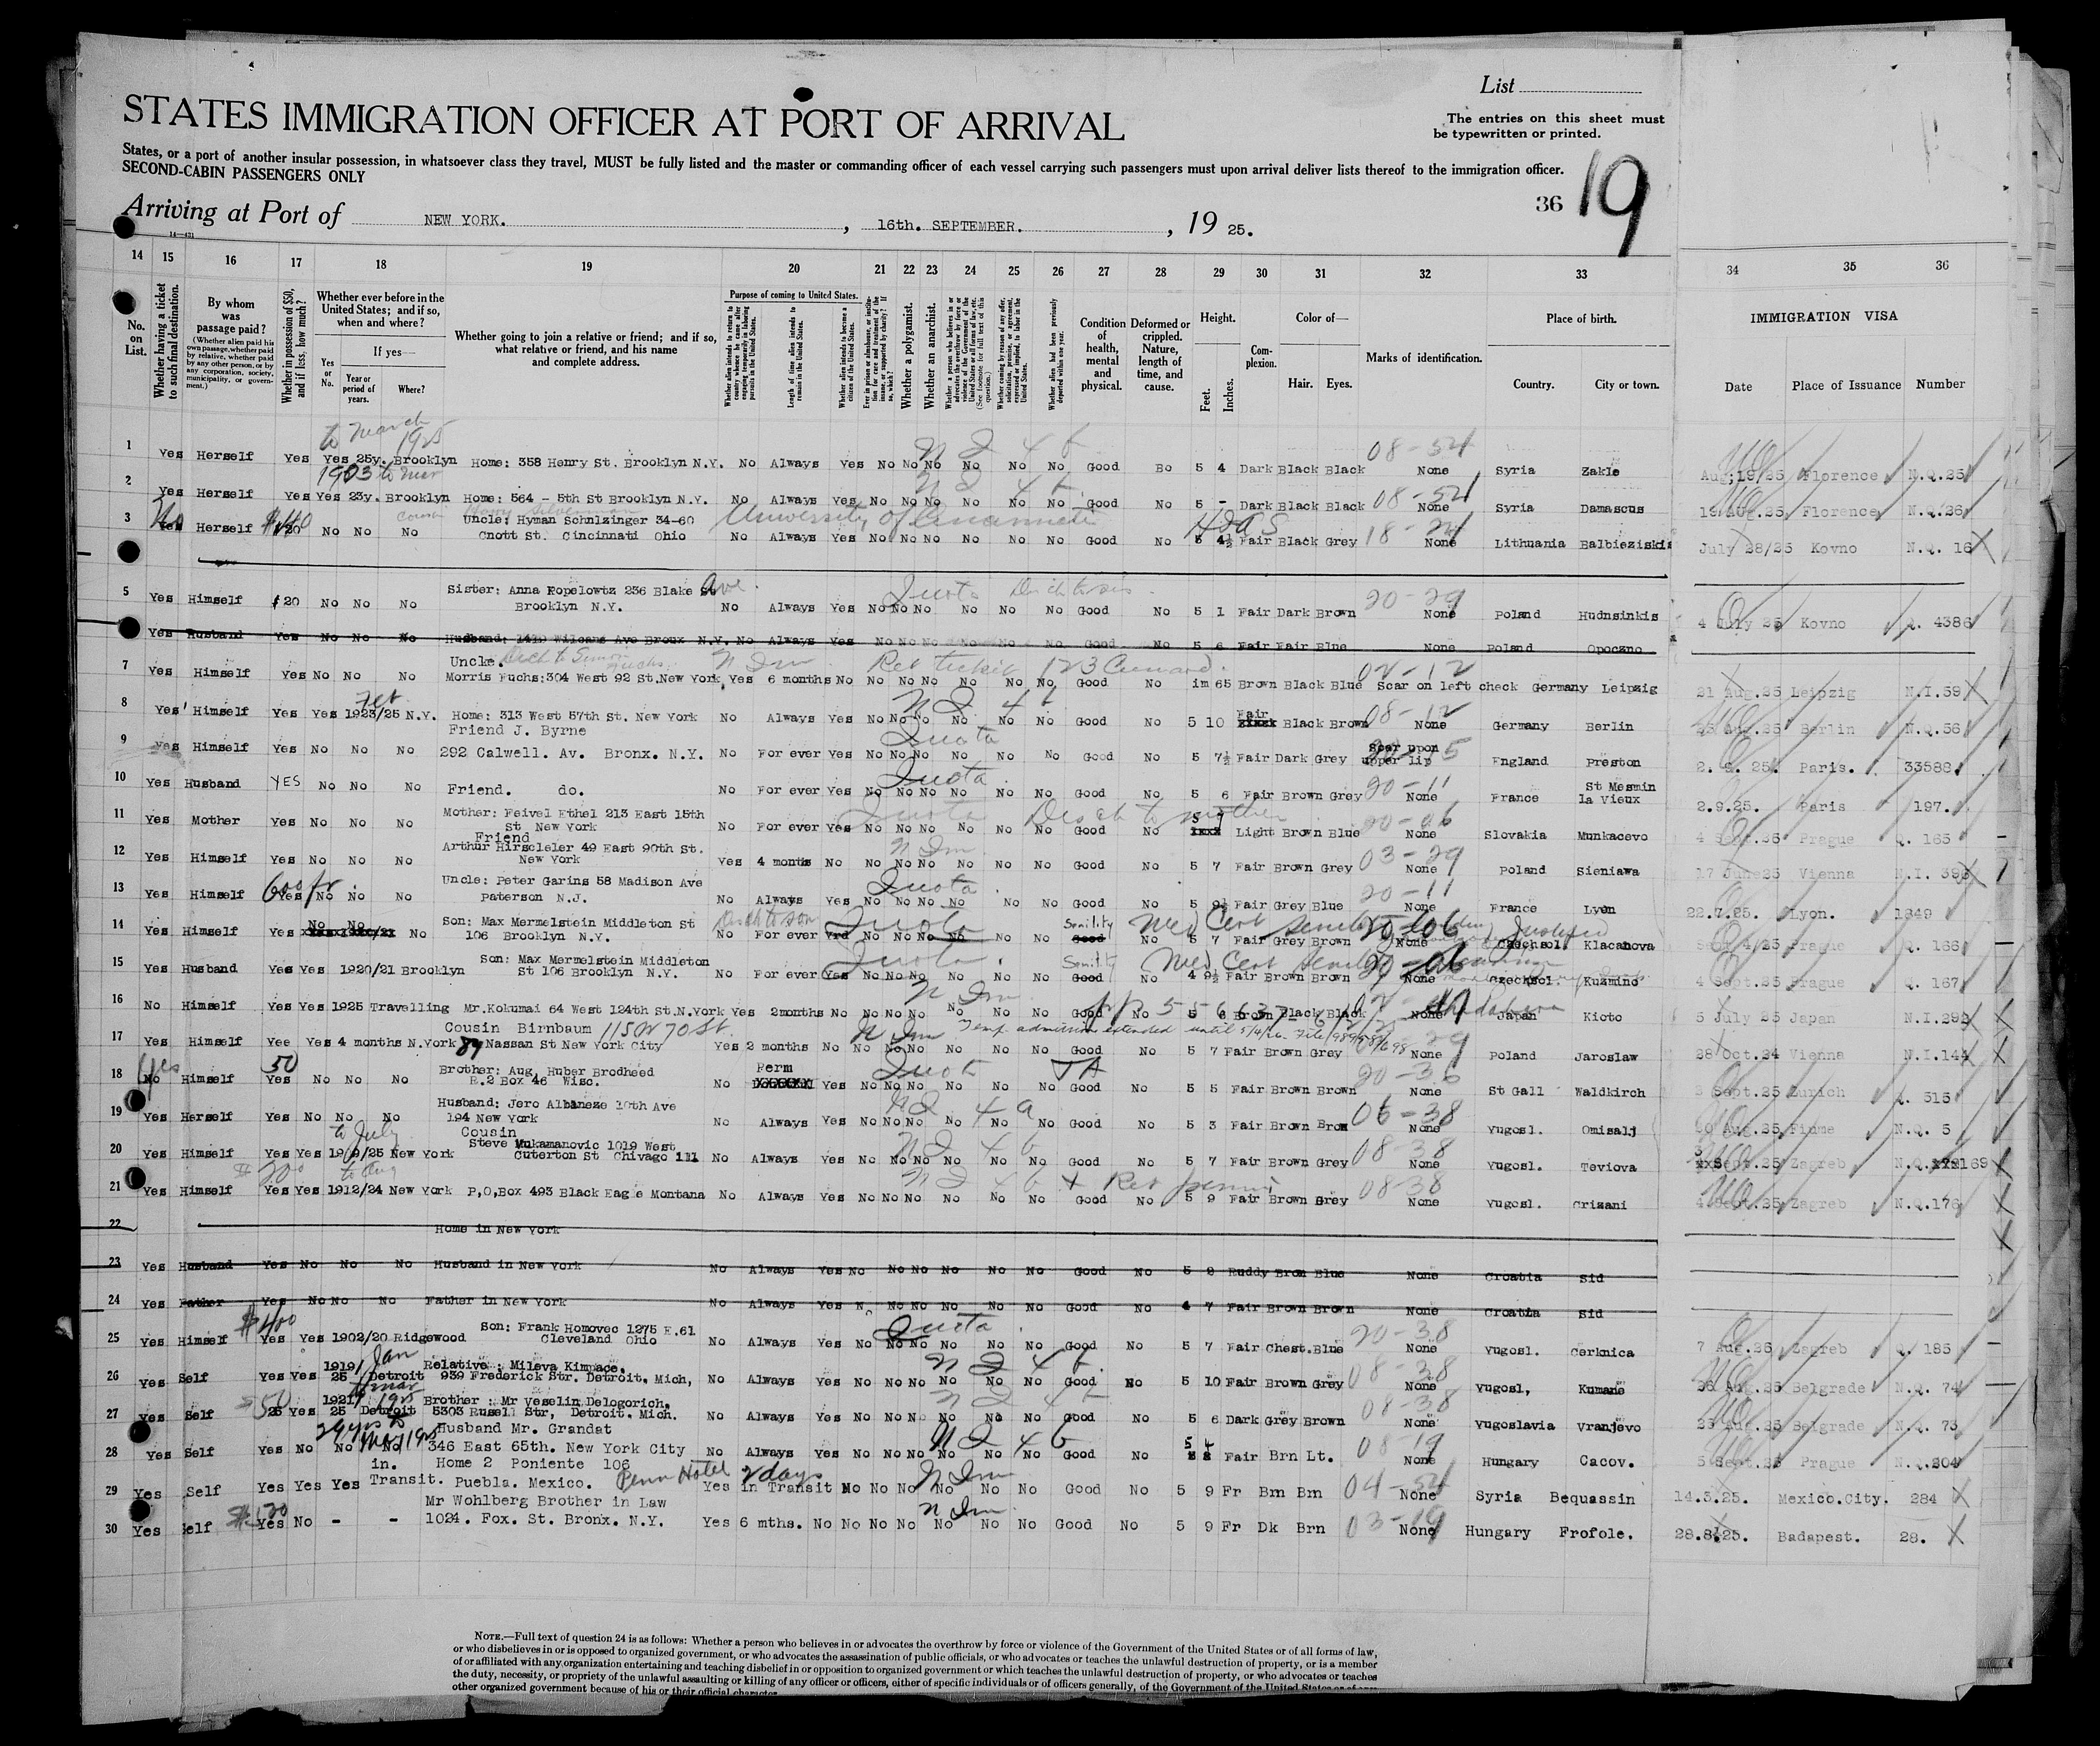 List
STATES IMMIGRATION OFFICER AT PORT OF ARRIVAL
The entries on this sheet must
be typewritten or printed.
States, or a port of another insular possession, in whatsoever class they travel, MUST be fully listed and the master or commanding officer of each vessel carrying such passengers must upon arrival deliver lists thereof to the immigration officer.
SECOND-CABIN PASSENGERS ONLY
36 19
Arriving at Port of NEW YORK. , 16th. SEPTEMBER. , 19 25.
14 15 16 17 18 19 20 21 22 23 24 25 26 27 28 29 30 31 32 33 34 35 36
No. on List.
Whether having a ticket to such final destination.
By whom was passage paid?
(Whether alien paid his own passage, whether paid by relative, whether paid by any other person, or by any corporation, society, municipality, or government.)
Whether in possession of $50, and if less, how much?
Whether ever before in the United States; and if so, when and where?
Yes or No.
If yes—
Year or period of years.
Where?
Whether going to join a relative or friend; and if so, what relative or friend, and his name and complete address.
Purpose of coming to United States.
Whether alien intends to return to country whence he came after engaging temporarily in laboring pursuits in the United States.
Length of time alien intends to remain in the United States.
Whether alien intends to become a citizen of the United States.
Whether a polygamist.
Whether an anarchist.
Whether alien had been previously deported within one year.
Condition of health, mental and physical.
Deformed or crippled. Nature, length of time, and cause.
Height.
Feet. Inches.
Complexion.
Color of—
Hair. Eyes.
Marks of identification.
Place of birth.
Country. City or town.
IMMIGRATION VISA
Date Place of Issuance Number
to March 1925
1 Yes Herself Yes Yes 25y. Brooklyn Home: 358 Henry St. Brooklyn N.Y. No Always Yes No No No No No No Good No 5 4 Dark Black Black 08-54 None Syria Zakle Aug;19/25 Florence N.Q.25
1903 to Mar
2 Yes Herself Yes Yes 23y. Brooklyn Home: 564 - 5th St Brooklyn N.Y. No Always Yes No No No No No No Good No 5 - Dark Black Black 08-54 None Syria Damascus 19 Aug.25 Florence N.Q.26
3 No Yes Herself $20 No No No Uncle: Hyman Schnlzinger 34-60
Cnott St. Cincinnati Ohio No Always Yes No No No No No No Good No 5 4½ Fair Black Grey 18-24 None Lithuania Balbieziski July 28/25 Kovno N.Q. 16
5 Yes Himself $20 No No No Sister: Anna Ropelowtz 236 Blake St Ave.
Brooklyn N.Y. No Always Yes No No No No No No Good No 5 1 Fair Dark Brown 20-29 None Poland Hudnsinkis 4 July 25 Kovno Q. 4386
Yes Husband Yes No No No Husband: 1419 Wilcans Ave Broux N.Y. No Always Yes No No No No No No Good No 5 6 Fair Fair Blue None Poland Opoczno
7 Yes Himself Yes No No No Uncle.
Morris Fuchs:304 West 92 St.New York, Yes 6 months No No No No No No No Good No 1m 65 Brown Black Blue Scar on left check Germany Leipzig 21 Aug.25 Leipzig N.I.59
8 Yes Himself Yes Yes 1923/25 N.Y. Home: 313 West 57th St. New York No Always Yes No No No No No No Good No 5 10 Fair Black Brown 08-12 None Germany Berlin Aug.25 Berlin N.Q.56
9 Yes Himself Yes No No No Friend J. Byrne
292 Calwell. Av. Bronx. N.Y. No For ever Yes No No No No No No Good No 5 7½ Fair Dark Grey Scar upon upper lip England Preston 2. 9. 25. Paris. 33588.
10 Yes Husband YES No No No Friend. do. No For ever Yes No No No No No No Good No 5 6 Fair Brown Grey 20-11 None France St Mesmin la Vieux 2.9.25. Paris 197.
11 Yes Mother Yes No No No Mother: Feivel Ethel 213 East 15th
St New York No For ever Yes No No No No No No Good No Light Brown Blue 20-06 None Slovakia Munkacevo 4 Sept.25 Prague Q. 165
12 Yes Himself Yes No No No Friend
Arthur Hirscleler 49 East 90th St.
New York Yes 4 months No No No No No No No Good No 5 7 Fair Brown Grey 03-29 None Poland Sieniawa 17 June25 Vienna N.I.
600 fr.
13 Yes Himself Yes No No No Uncle: Peter Garins 58 Madison Ave
Paterson N.J. No Always Yes No No No No No No Good No 5 9½ Fair Grey Blue 20-11 None France Lyon 22.7.25. Lyon. 1849
14 Yes Himself Yes No No No Son: Max Mermelstein Middleton St
106 Brooklyn N.Y. No For ever No No No No No No Senility Good No 5 7 Fair Grey Brown 20-06 None Czechsol. Klacanova Sept 4/25 Prague Q. 166
15 Yes Husband Yes Yes 1920/21 Brooklyn Son: Max Mermelstein Middleton
St 106 Brooklyn N.Y. No For ever Yes No No No No No No Senility Good No 4 9½ Fair Brown Brown 20-06 None Czechsol. Kuzmino 4 Sept.25 Prague Q. 167
16 No Himself Yes Yes 1925 Travelling Mr.Kokumai 64 West 124th St.N.York Yes 2months No No No No No No No Good No 5 6 Brown Black Black None Japan Kioto 5 July 25 Japan N.I.293
Temp. admission extended until 5/4/26.
17 Yes Himself Yee Yes 4 months N.York Cousin Birnbaum 115 W 70 St.
89 Nassan St New York City Yes 2 months No No No No No No No Good No 5 7 Fair Brown Grey None Poland Jaroslaw 28 Oct.24 Vienna N.I.144
18 Yes No Himself 50 Yes No No No Brother: Aug. Huber Brodheed
R.2 Box 46 Wisc. No Perm Yes No No No No No No Good No 5 5 Fair Brown Brown 20-36 None St Gall Waldkirch 3 Sept.25 Zurich Q. 315
19 Yes Herself Yes No No No Husband: Jero Albaneze 10th Ave
194 New York No Always Yes No No No No No No Good No 5 3 Fair Brown Bron 06-38 None Yugosl. Omisalj Aug.25 Fiume N.Q. 5
to July
20 Yes Himself Yes Yes 1909/25 New York Cousin
Steve Mukamanovic 1019 West
Cuterton St Chivago Ill No Always Yes No No No No No No Good No 5 7 Fair Brown Grey 08-38 None Yugosl. Teviova Sept.25 Zagreb N.Q. 169
$200 to Aug
21 Yes Himself Yes Yes 1912/24 New York P,O,Box 493 Black Eagle Montana No Always Yes No No No No No No Good No 5 9 Fair Brown Grey 08-38 None Yugosl. Crizani 4 Sept.25 Zagreb N.Q.176
22 Home in New York
23 Yes Husband Yes No No No Husband in New York No Always Yes No No No No No No Good No 5 2 Ruddy Bron Blue None Croatia Sid
24 Yes Father Yes No No No Father in New York No Always Yes No No No No No No Good No 4 7 Fair Brown Brown None Croatia Sid
$400
25 Yes Himself Yes Yes 1902/20 Ridgewood Son: Frank Homovec 1275 E.61
Cleveland Ohio No Always Yes No No No No No No Good No 5 7 Fair Chest.Blue 20-38 None Yugosl. Cerknica 7 Aug.25 Zagreb Q. 185
26 Yes Self Yes Yes 1919/ Jan 25 Detroit Relative : Mileva Kimpace.
939 Frederick Str. Detroit. Mich, No Always Yes No No No No No No Good No 5 10 Fair Brown Grey 08-38 None Yugosl, Kumane 26 Aug.25 Belgrade N.Q. 74
27 Yes Self $50 25 Yes 1921/ 25 Detroit Brother : Mr Veselin Delogorich,
5303 Rusell Str, Detroit. Mich. No Always Yes No No No No No No Good No 5 6 Dark Grey Brown 08-38 None Yugoslavia Vranjevo 25 Aug.25 Belgrade N.Q. 73
28 Yes Self Yes No No No Husband Mr. Grandat
346 East 65th. New York City No Always Yes No No No No No No Good No 5 4 Fair Brn Lt. 08-19 None Hungary Cacov. 5 Sept.25 Prague N.Q.204
29 Yes Self Yes Yes Yes in. Transit. Home 2 Poniente 106
Puebla. Mexico. Penn Hotel 2 days Yes in Transit No No No No No No No Good No 5 9 Fr Brn Brn 04-54 None Syria Bequassin 14.3.25. Mexico.City. 284
30 Yes Self Yes No - - Mr Wohlberg Brother in Law
1024. Fox. St. Bronx. N.Y. Yes 6 mths. No No No No No No No Good No 5 9 Fr Dk Brn 03-19 None Hungary Frofole. 28.8.25. Badapest. 28.
NOTE.—Full text of question 24 is as follows: Whether a person who believes in or advocates the overthrow by force or violence of the Government of the United States or of all forms of law,
or who disbelieves in or is opposed to organized government, or who advocates the assassination of public officials, or who advocates or teaches the unlawful destruction of property, or is a member
of or affiliated with any organization entertaining and teaching disbelief in or opposition to organized government or which teaches the unlawful destruction of property, or who advocates or teaches
the duty, necessity, or propriety of the unlawful assaulting or killing of any officer or officers, either of specific individuals or of officers generally, of the Government of the United States or of any
other organized government because of his or their official character